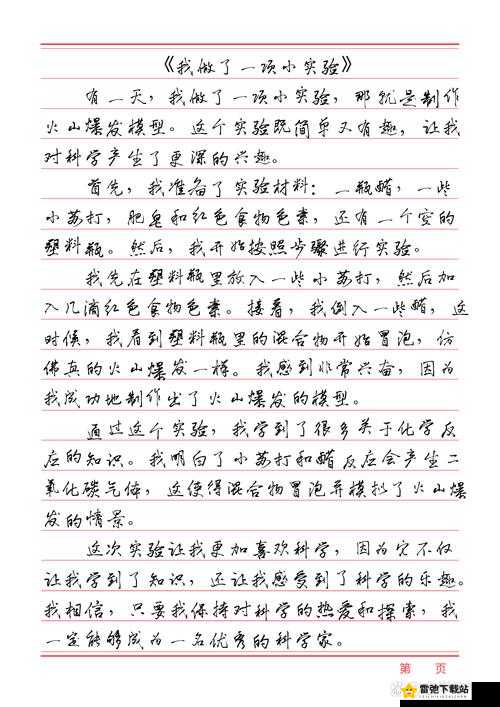 《我做了一项小实验》
有一天，我做了一项小实验，那就是制作
火山爆发模型。这个实验既简单又有趣，让我
对科学产生了更深的兴趣。
首先，我准备了实验材料：一瓶醋，一些
小苏打，肥皂和红色食物色素，还有一个空的
塑料瓶。然后，我开始按照步骤进行实验。
我先在塑料瓶里放入一些小苏打，然后加
入几滴红色食物色素。接着，我倒入一些醋，这
时候，我看到塑料瓶里的混合物开始冒泡，仿
佛真的火山爆发一样。我感到非常兴奋，因为
我成功地制作出了火山爆发的模型。
通过这个实验，我学到了很多关于化学反
应的知识。我明白了小苏打和醋反应会产生二
氧化碳气体，这使得混合物冒泡并模拟了火山爆
发的情景。
这次实验让我更加喜欢科学，因为它不仅
让我学到了知识，还让我感受到了科学的乐趣。
我相信，只要我保持对科学的热爱和探索，我
一定能够成为一名优秀的科学家。
第 页
雷弛下载站